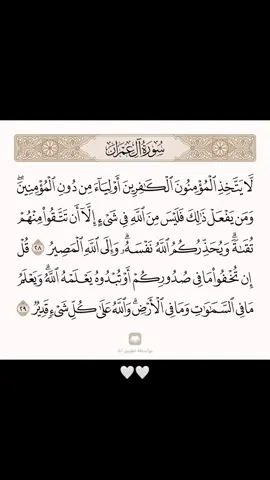 سُورَةُ آلِ عِمْرَان
لَّا يَتَّخِذِ الْمُؤْمِنُونَ الْكَافِرِينَ أَوْلِيَاءَ مِن دُونِ الْمُؤْمِنِينَ ۖ
وَمَن يَفْعَلْ ذَٰلِكَ فَلَيْسَ مِنَ اللَّهِ فِي شَيْءٍ إِلَّا أَن تَتَّقُوا مِنْهُمْ
تُقَاةً ۗ وَيُحَذِّرُكُمُ اللَّهُ نَفْسَهُ ۗ وَإِلَى اللَّهِ الْمَصِيرُ ٢٨ قُلْ
إِن تُخْفُوا مَا فِي صُدُورِكُمْ أَوْ تُبْدُوهُ يَعْلَمْهُ اللَّهُ ۗ وَيَعْلَمُ
مَا فِي السَّمَاوَاتِ وَمَا فِي الْأَرْضِ ۗ وَاللَّهُ عَلَىٰ كُلِّ شَيْءٍ قَدِيرٌ ٢٩
بواسطة تطبيق آية